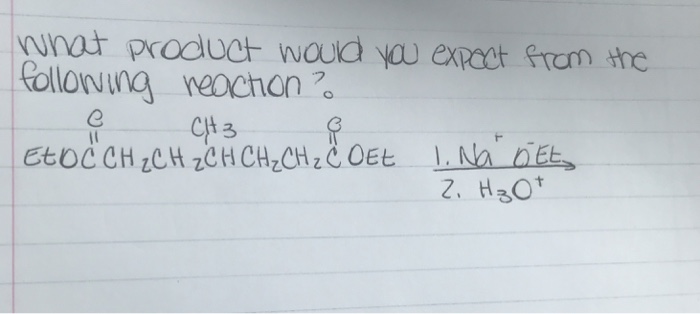 What product would you expect from the
following reaction?
O CH3 O
EtOC CH2CH2CHCH2CH2C OEt 1. Na+ -OEt
2. H3O+